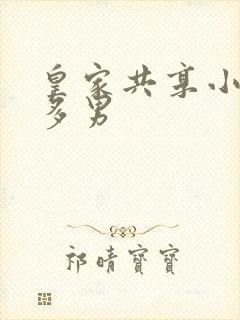 皇家共享小
多男
祁晴寶寶